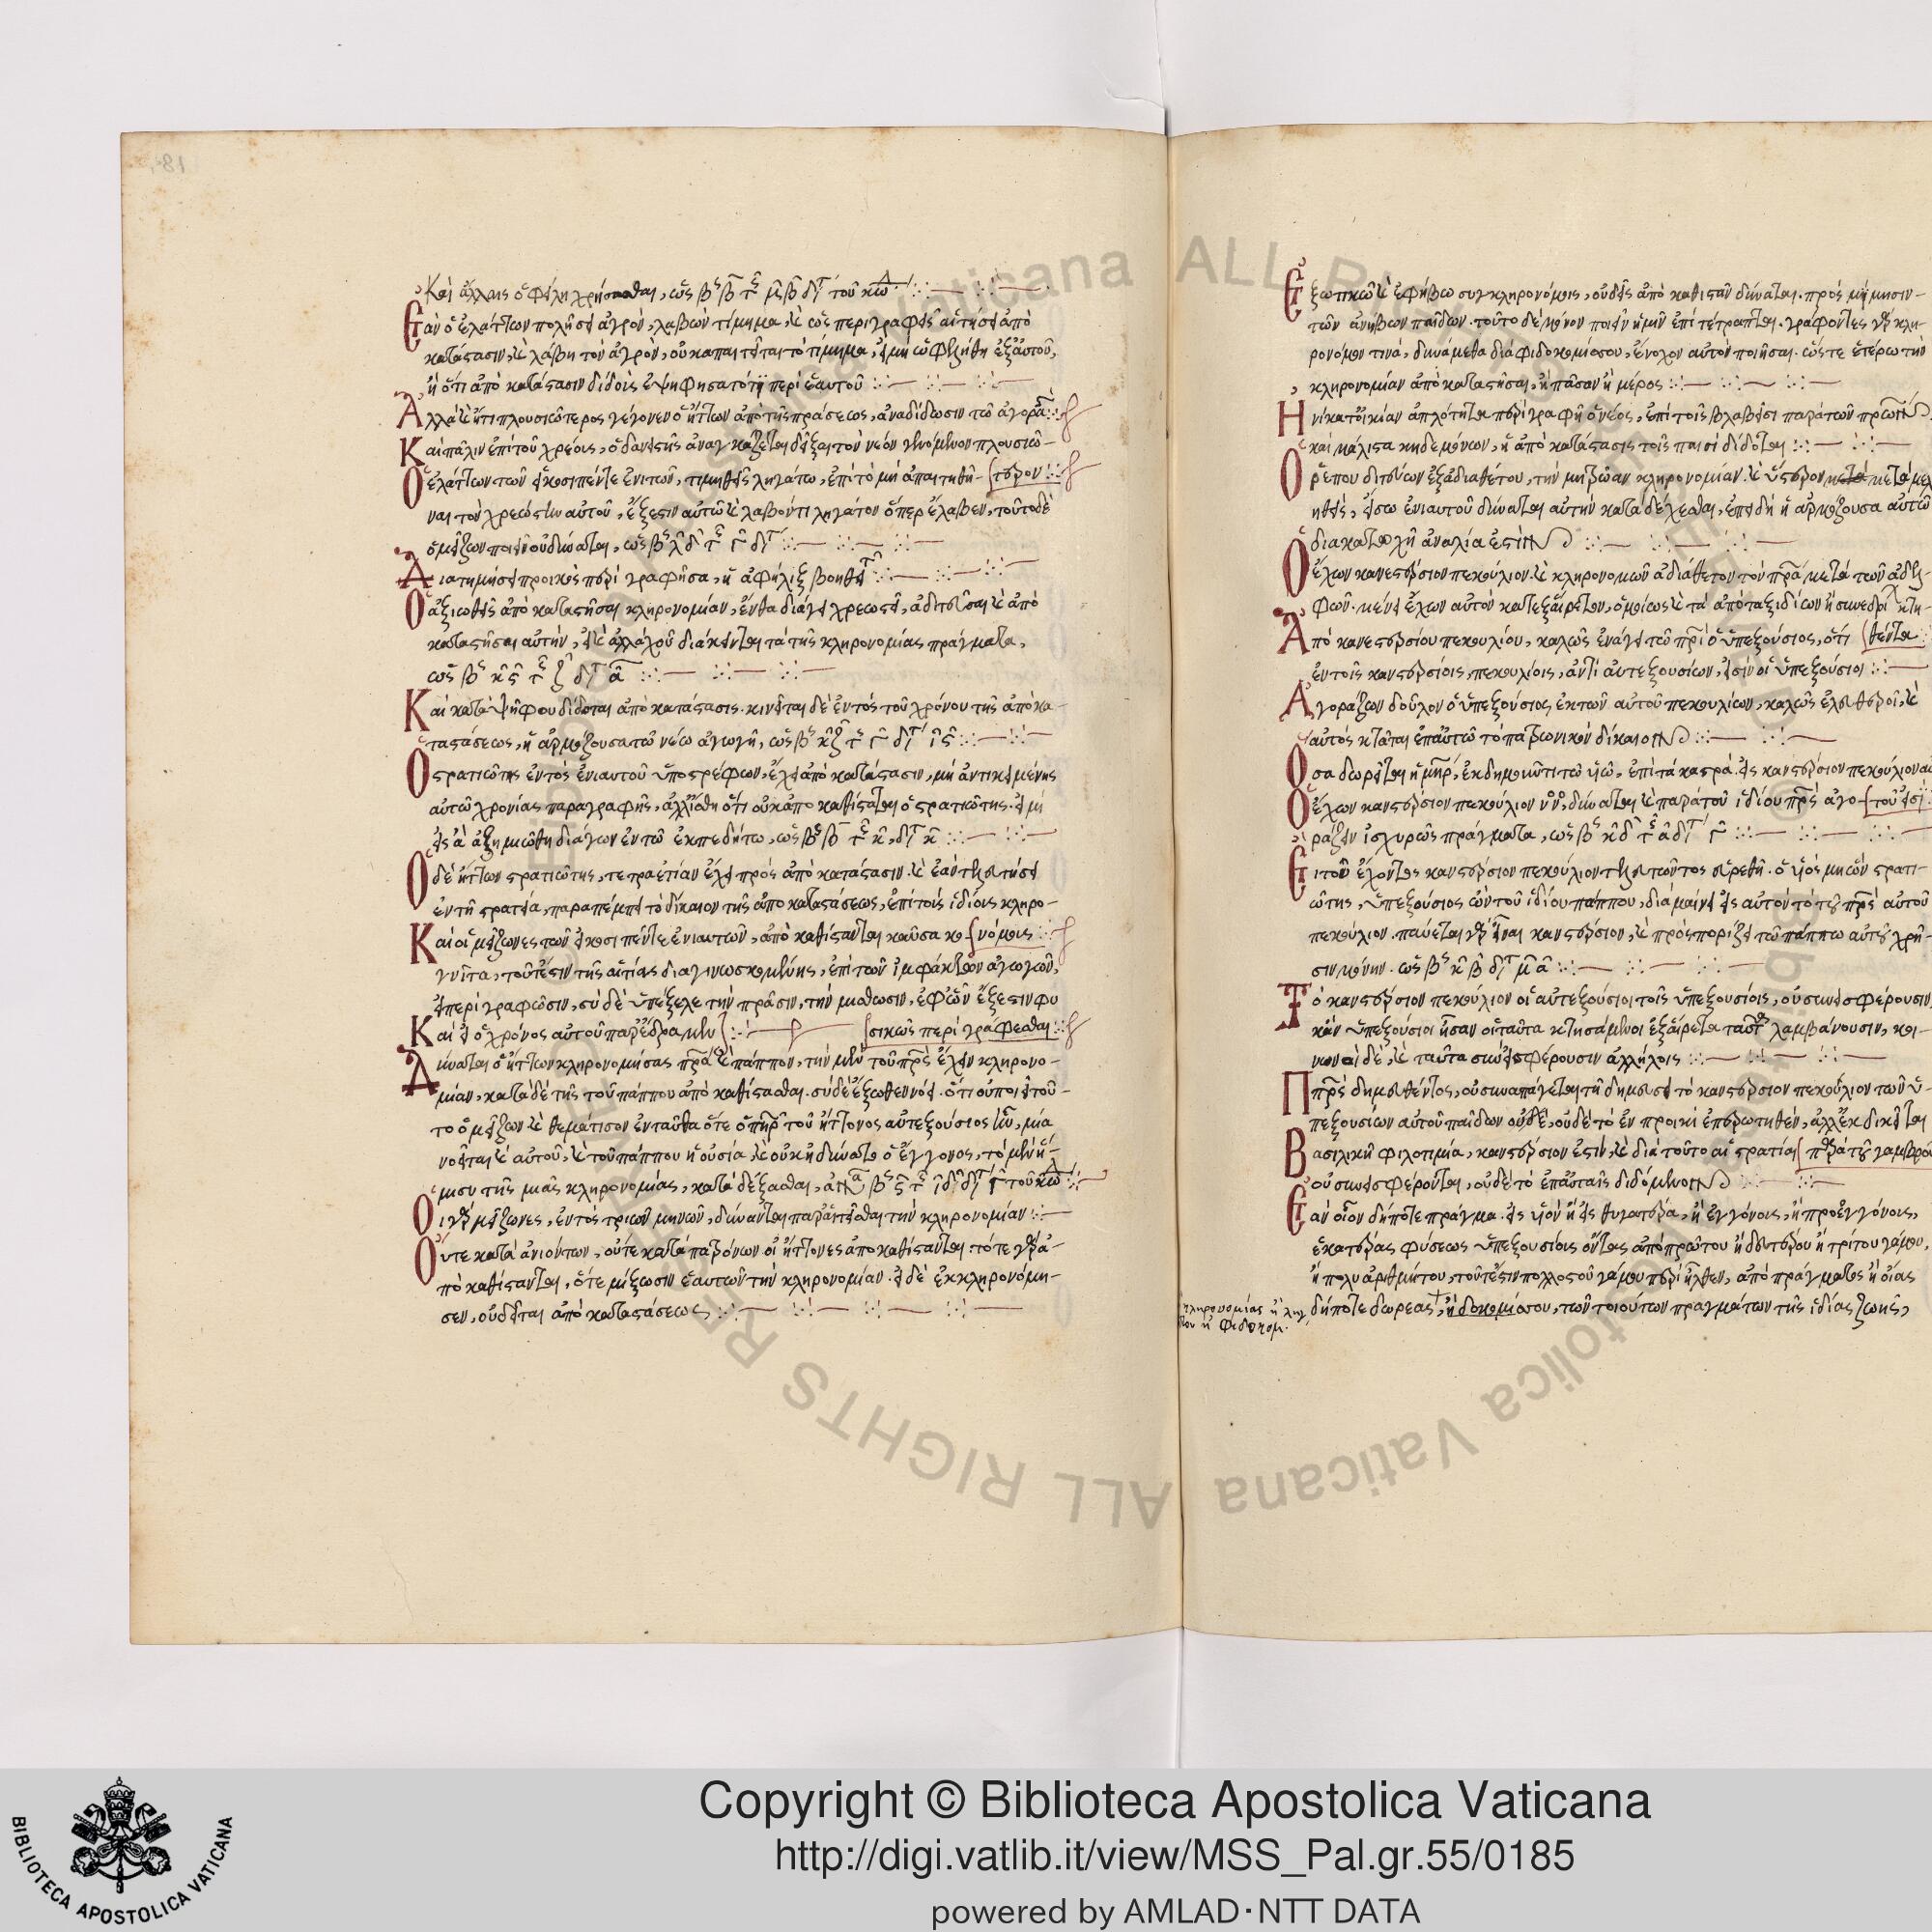 Καὶ ἄλλοις ὀφείλῃ χρήσασθαι, ὡς βς β τξ μβ δγτ τοῦ
Ἐὰν ὁ ἐλάττων πολήσει ἀγρὸν, λαβὼν τίμημα, καὶ ὡς περιγραφεὶς αἰτήσει ἀπὸ
κατάστασιν, καὶ λάβη τὸν ἀγρὸν, οὐκ ἀπαιτεῖται τὸ τίμημα, εἰ μὴ ὠφελήθη ἐξ αὐτοῦ,
ἢ ὅτι ἀπὸ κατάστασιν δίδοις ἐψηφήσατό τι περὶ ἑαυτοῦ
Ἀλλὰ καὶ ἤτι πλουσιώτερος γέγονεν ὁ ἥττων ἀπὸ τῆς πράσεως, ἀναδίδωσιν τῶ ἀγορα
Καὶ πάλιν ἐπὶ τοῦ χρέοις, ὁ δανειστὴς ἀναγκάζεται δεῖξαι τὸν νέον γενόμενον πλουσιώ-
Ὁ ἐλάττων τῶν εἰκοσιπέντε ἐνιτῶν, τιμηθεὶς ληγάτω, ἐπὶ τὸ μὴ ἀπαιτηθῆ- τερον
ναι τὸν χρεώστην αὐτοῦ, ἔξεστιν αὐτῶ καὶ λαβόντι ληγάτον ὅπερ ἔλαβεν, τοῦτο δὲ
ὁ μείζων ποιεῖν οὐ δύναται, ὡς βς λδ τξ γ δγτ
Διατημήσει προικὸς περιγραφῆσα, ἡ ἀφήλιξ βοηθεῖτ
Ὁ ἀξιωθεὶς ἀπὸ καταστῆσαι κληρονομίαν, ἔνθα διάγει χρεωστεῖ, ἀδιτεῦσαι καὶ ἀπὸ
καταστῆσαι αὐτὴν, εἰ καὶ ἀλλαχοῦ διάκεινται τὰ τῆς κληρονομίας πράγματα,
ὡς βς κς τξ ζ δγτ α
Καὶ κατὰ ψήφου δίδοται ἀπὸ κατάστασις. κινεῖται δὲ ἐντὸς τοῦ χρόνου τῆς ἀπὸ κα-
ταστάσεως, ἡ ἁρμόζουσα τῶ νέω ἀγωγὴ, ὡς βς κζ τξ γ δγτ ις
Ὁ στρατιώτης ἐντὸς ἐνιαυτοῦ ὑποστρέφων, ἔχει ἀπὸ κατάστασιν, μὴ ἀντικειμένης
αὐτῶ χρονίας παραγραφῆς, ἀλλ' ἴσθη ὅτι οὐκ ἀπο καθίσταται ὁ στρατιώτης. εἰ μὴ
εἰς ἃ ἀζημιώθη διάγων ἐν τῶ ἐκπεδήτω, ὡς βς β τξ κ, δγτ κ
Ὁ δὲ ἥττων στρατιώτης, τετραετίαν ἔχει πρὸς ἀπὸ κατάστασιν. καὶ ἐὰν τελευτήσει
ἐν τῇ στρατεία, παραπέμπει τὸ δίκαιον τῆς ἀπο καταστάσεως, ἐπὶ τοῖς ἰδίοις κληρο-
Καὶ οἱ μείζωνες τῶν εἰκοσι πέντε ἐνιαυτῶν, ἀπὸ καθίστανται καῦσα κο νόμοις
γνῖτα, τουτέστιν τῆς αἰτίας διαγινωσκομένης, ἐπὶ τῶν ἰμφάκτον ἀγωγῶν,
εἰ περιγραφῶσιν, σὺ δὲ ὑπέξελε τὴν πράσιν, τὴν μίσθωσιν, ἐφ' ὧν ἔξεστιν φυ
Καὶ εἰ ὁ χρόνος αὐτοῦ παρέδραμεν σικῶς περιγράφεσθαι
Δύναται ὁ ἥττων κληρονομήσας πρα καὶ πάππον, τὴν μὲν τοῦ πρς ἔχειν κληρονο-
μίαν, κατὰ δὲ τῆς τοῦ πάππου ἀπὸ καθίστασθαι. σὺ δὲ ἔξωθεν νόει. ὅτι οὐ ποιεῖ τοῦ-
το ὁ μείζων καὶ θεμάτισον ἐνταῦθα ὅτε ὁ πηρ τοῦ ἥττονος αὐτεξούσιος ἦν, μία
νοεῖται καὶ αὐτοῦ, καὶ τοῦ πάππου ἡ οὐσία, καὶ οὐκ ἠδύνατο ὁ ἔγγονος, τὸ μὲν ἥ-
μισυ τῆς μιᾶς κληρονομίας, καταδέξασθαι,
Οἱ γὰρ μείζωνες, ἐντὸς τριῶν μηνῶν, δύνανται παραιτεῖσθαι τὴν κληρονομίαν
Οὔτε κατὰ ἀνιόντων, οὔτε κατὰ πατρόνων οἱ ἥττονες ἀποκαθίστανται. τότε γὰρ ἀ-
πὸ καθίστανται, ὅτε μίξωσιν ἑαυτῶν τὴν κληρονομίαν. εἰ δὲ ἐκκληρονόμη-
σεν, οὐ δεῖται ἀπὸ καταστάσεως
Ἐξωτικῶ καὶ ἐφήβω συγκληρονόμοις, οὐδεὶς ἀπὸ καθιστᾶν δύναται. πρὸς μίμησιν
τῶν ἀνήβων παίδων. τοῦτο δὲ μόνον ποιεῖν ἡμῖν ἐπιτέτραπται. γράφοντες γὰρ κλη-
ρονόμον τινὰ, δυνάμεθα διὰ φιδοκομίσσου, ἔνοχον αὐτὸν ποιῆσαι. ὥστε ἑτέρω τὴν
κληρονομίαν ἀπὸ καταστῆσαι, ἢ πᾶσαν ἢ μέρος
Ἡνίκα τοικίαν ἁπλότητα περιγραφῆ ὁ νέος, ἐπὶ τοῖς βλαβεῖσι παρὰ τῶν
καὶ μάλιστα κηδεμόνων, ἡ ἀπὸ κατάστασις τοῖς παισὶ δίδοται
Ὁ ρεπουδιτεύων ἐξ ἀδιαθέτου, τὴν μητρῶαν κληρονομίαν. καὶ ὕστερον μετὰ
ηθεὶς, εἴσω ἐνιαυτοῦ δύναται αὐτὴν καταδέχεσθαι, ἐπειδὴ ἡ ἁρμόζουσα αὐτῶ
διακατοχὴ ἀναλία ἐστὶν
Ὁ ἔχων καστρέσιον πεκούλιον. καὶ κληρονομῶν ἀδιάθετον τὸν πρα μετὰ τῶν ἀδελ-
φῶν. μένει ἔχων αὐτὸν κατεξαίρετον, ὁμοίως καὶ τὰ ἀπὸ ταξιδίων ἢ συνεδρι κτη-
Ἀπὸ καστρεσίου πεκουλίου, καλῶς ἐνάγει τῶ πρὶ ὁ ὑπεξούσιος, ὅτι θέντα
ἐν τοῖς καστρεσίοις, πεκουλίοις, ἀντὶ αὐτεξουσίων, εἰσὶν οἱ ὑπεξούσιοι
Ἀγοράζων δοῦλον ὁ ὑπεξούσιος ἐκ τῶν αὐτοῦ πεκουλίων, καλῶς ἐλευθεροῖ, καὶ
αὐτὸς κτᾶται ἐπ' αὐτῶ τὸ πατρωνικὸν δίκαιον
Ὅσα δωρεῖται ἡ μηρ, ἐκδημοῦντι τῶ υἱῶ, ἐπὶ τὰ καστρά. εἰς καστρέσιον πεκούλιον
Ὁ ἔχων καστρέσιον πεκούλιον, δύναται καὶ παρὰ τοῦ ἰδίου πρς ἀγο- τοῦ εἰσι
ράζειν ἰσχυρῶς πράγματα, ὡς βς κδ τξ α δγτ γ
Εἰ τοῦ ἔχοντος καστρέσιον πεκούλιον τελευτῶντος εὑρεθῆ. ὁ υἱὸς μὴ ὢν στρατι-
ώτης, ὑπεξούσιος ὢν τοῦ ἰδίου πάππου, διαμαίνει εἰς αὐτὸν τὸ τοῦ πρς αὐτοῦ
πεκούλιον. παύεται γὰρ εἶναι καστρέσιον, καὶ προσπορίζει τῶ πάππω αὐτοῦ χρῆ-
σιν μόνην. ὡς βς κβ δγτ μα
Τὸ καστρέσιον πεκούλιον οἱ αὐτεξούσιοι τοῖς ὑπεξουσίοις, οὐ συνεισφέρουσιν
κἂν ὑπεξούσιοι ἦσαν οἱ ταῦτα κτησάμενοι ἐξαίρετα λαμβάνουσιν, κοι-
νωνοὶ δὲ, καὶ ταῦτα συνεισφέρουσιν ἀλλήλοις
Π πρς δημευθέντος, οὐ συναπάγεται τῆ δημεύσει τὸ καστρέσιον πεκούλιον τῶν ὑ-
πεξουσίων αὐτοῦ παίδων οὐδὲ, οὐδὲ τὸ ἐν προικὶ ἐπερωτηθὲν, ἀλλ' ἐκδικεῖται
Βασιλικὴ φιλοτιμία, καστρέσιον ἐστὶν, καὶ διὰ τοῦτο αἱ στρατίαι
οὐ συνεισφέρονται, οὐδὲ τὸ ἐπ' αὐταῖς διδόμενον
Ἐὰν οἷον δήποτε πρᾶγμα. εἰς υἱὸν ἢ εἰς θυγατέρα, ἢ ἐγγόνοις, ἢ προεγγόνοις,
ἑκατέρας φύσεως ὑπεξουσίοις ὄντας ἀπὸ πρώτου ἢ δευτέρου ἢ τρίτου γάμου,
ἢ πολυ ἀριθμήτου, τουτέστιν πολλοστοῦ γάμου περιῆλθεν, ἀπὸ πράγματος ἢ οἵας
δήποτε δωρεας, ἢ δοκομίσσου, τῶν τοιούτων πραγμάτων τῆς ἰδίας ζωῆς,
κληρονομίας ἢ ληγ
ἢ φιδοκομ
Copyright © Biblioteca Apostolica Vaticana
http://digi.vatlib.it/view/MSS_Pal.gr.55/0185
powered by AMLAD·NTT DATA
BIBLIOTECA APOSTOLICA VATICANA